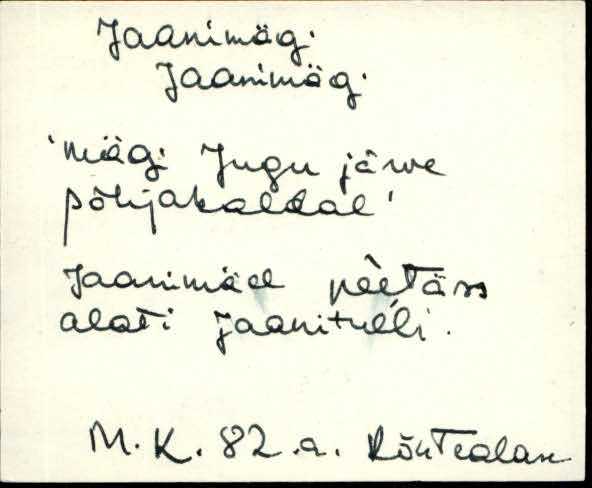 Jaanimägi
Jaanimägi
'mägi Jugu järve
põhjakaldal'
Jaanimäel peetäss
alati jaanitulli.
M. K. 82.a.